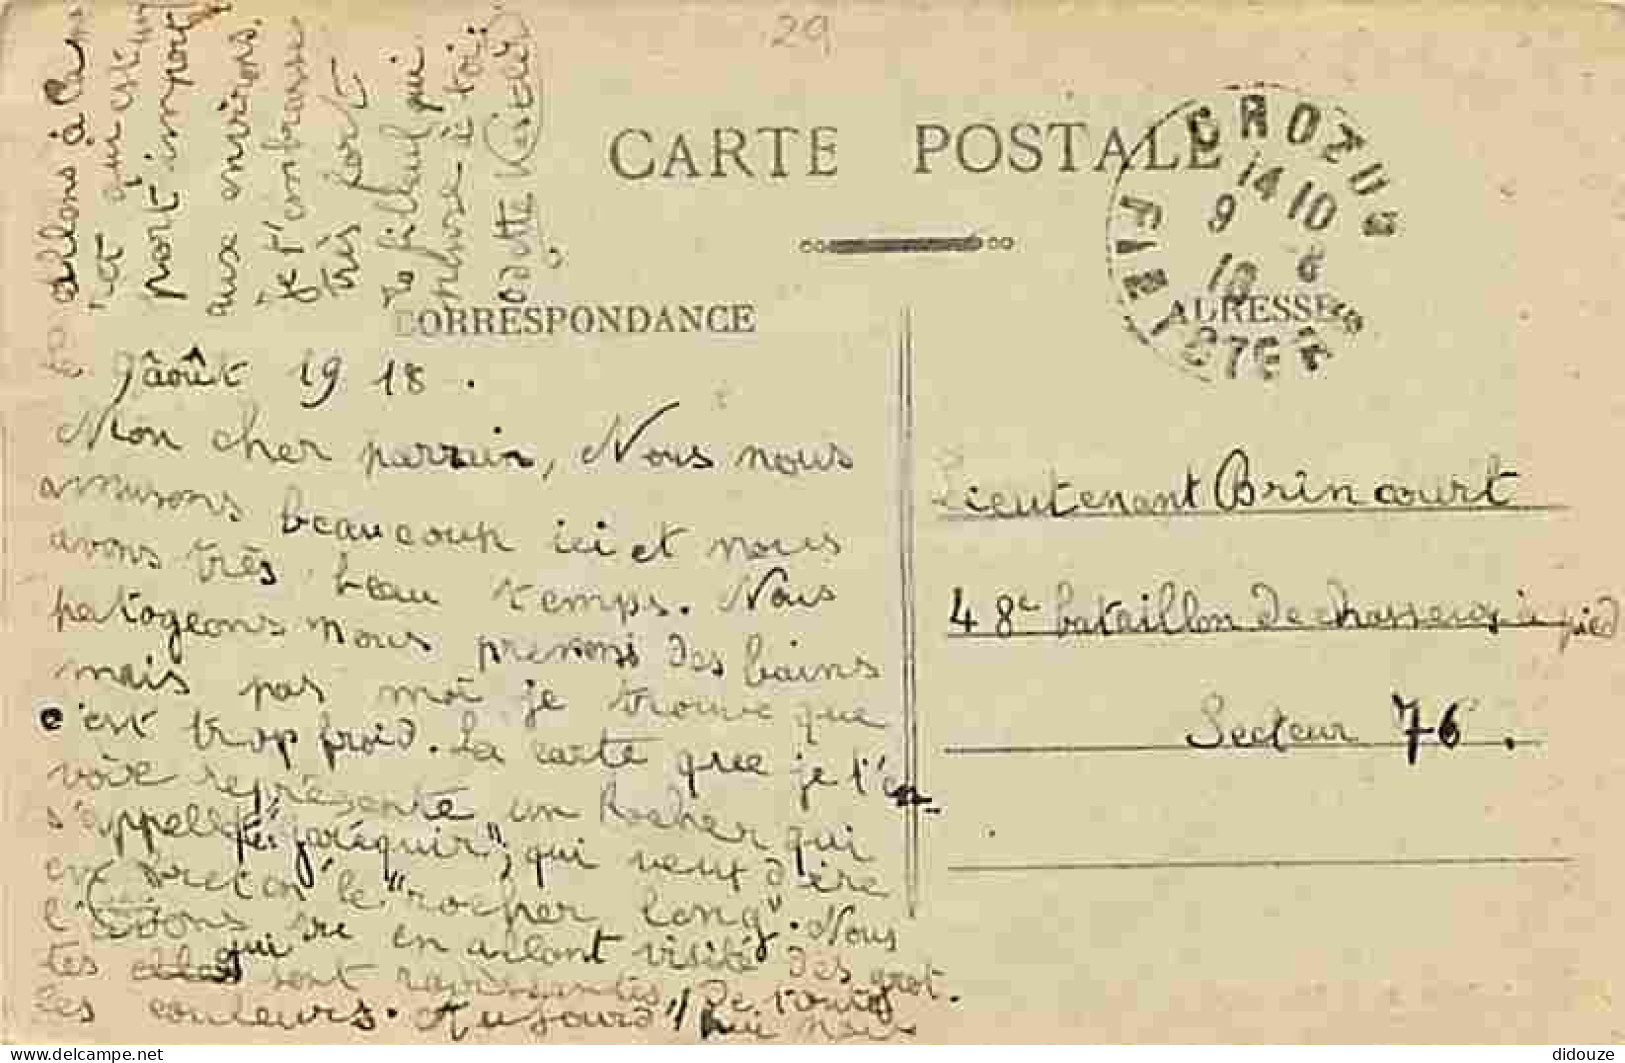 29
CARTE POSTALE
CROZON
14 10
9 8
18
FINISTERE
CORRESPONDANCE
ADRESSE
9 âoût 1918.
Mon cher parrain, Nous nous
amusons beaucoup ici et nous
avons très beau temps. Nous
patogeons nous prenons des bains
mais pas moi je trouve que
c'est trop froid. La carte que je t'en-
voie représente un Rocher qui
s'appelle "jaréquir", qui veut dire
en Breton le "rocher long". Nous
l'avons vu en allant visité des grot-
tes qui sont de toutes
les couleurs. Aujourd'hui nous
allons à
qui est un
port import
aux environs.
Je t'embrasse
très fort
Ta filleul qui
pense à toi.
Odette
Lieutenant Brincourt
48e bataillon de chasseurs à pied
Secteur 76.
didouze
delcampe.net